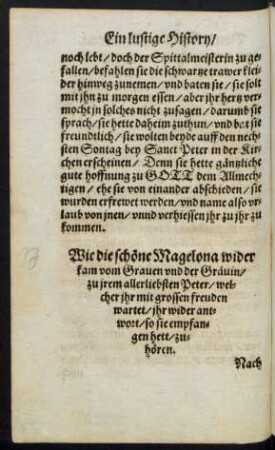 Ein lustige History/
noch lebt/ doch der Spittalmeisterin zu ge-
fallen/ befahlen sie die schwartze trawer klei-
der hinweg zunemen/ vnd baten sie/ sie solt
mit jhn zu morgen essen/ aber jhr hertz ver-
mocht jn solches nicht zusagen/ darumb sie
sprach/ sie hette daheim zuthun/ vnd bat sie
freundtlich/ sie wolten beyde auff den nech-
sten Sontag bey Sanct Peter in der Kir-
chen erscheinen/ Denn sie hette gäntzliche
gute hoffnung zu GOTT dem Allmech-
tigen/ ehe sie von einander abschieden/ sie
wurden erfrewet werden/ vnd name also vr-
laub von jnen/ vnnd verhiessen jhr zu jhr zu
kommen.
Wie die schöne Magelona wider
kam vom Grauen vnd der Gräuin/
zu jrem allerliebsten Peter/ wel-
cher jhr mit grossen freuden
wartet/ jhr wider ant-
wort/ so sie empfan-
gen hett/ zu-
hören.
Nach